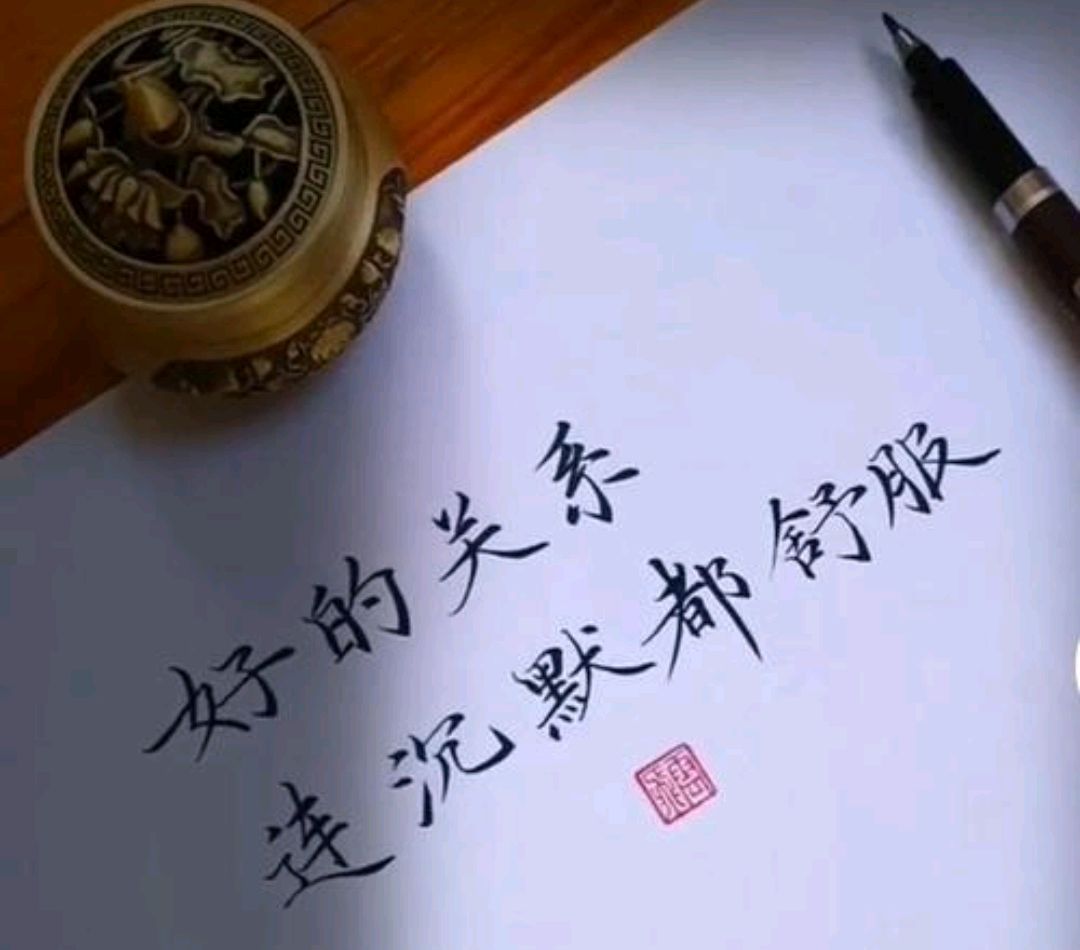 好的关系
连沉默都舒服